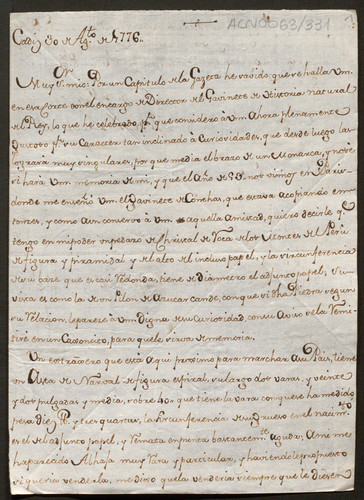 ACN0063/331
Cadiz 30 de Ag.to de 1776.
Muy S.or mio: Por un Capitulo de la Gazeta he savido, que se halla Vm
en esa Corte con el encargo de Director del Gavinete de Historia natural
del Rey, lo que he celebrado, p.r que considero a Vm. Ahora plenamente
gustoso p.r su Caracter tan inclinado à Curiosidades, que desde luego las
lograrà muy singulares, por que media el brazo de un Monarca, y no
se si harà Vm. memoria de mi, y que el año de 58. nos vimos en Paris
donde me enseñò Vm. el Gavinete de Conchas, que estava acopiando en-
tonces, y como aun conservo à Vm aquella Amistad, quiero decirle q.e
tengo en mi poder un pedazo de Christal de Roca de los Montes del Perù
de figura piramidal y de el alto del incluso papel, y la circunferencia
de su Vase que es casi redonda, tiene de diametro el adjunto papel, Su
vista es como la de un Pilon de Azucar cande, con que si dha Piedra segun
su Relacion, le parece à Vm. Digna de su Curiosidad, con su Aviso se la remi-
tirè en un Caxoncito, para que le sirva de memoria.
Un estrangero que està aqui proximo para marchar à su Pais, tiene
un Asta de Narval de figura espiral, su largo dos varas, y veinte
y dos pulgadas y media, sobre 40 que tiene la vara con que se ha medido
pesa diez lb. y tres quartas, la circunferencia de su grueso en el nacim.to
es el del adjunto papel, y remata en punta bastantem.te aguda, A mi me
ha parecido Alhaja muy rara y particular, y haviendole preguntado
si queria venderla, me dixo que la venderia siempre que le diesen